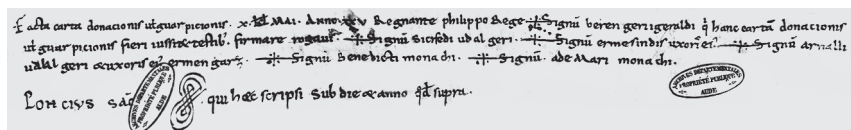 Facta carta donacionis ut guarpicionis. x. kłd Mai. Anno. xxv Regnante philippo Rege Signū beren geri igeraldi q̄ hanc cartā donacionis
ut guarpicionis fieri iussit & testib; firmare rogauit. Signū sicfredi udal geri. Signū ermesindis uxoris ei'. Signū arnalli
udal geri & uxoris ei' ermen garz. Signū Benedicti monachi. Signū ademari monachi.
Poncius sac̄ qui hæc scripsi sub die & anno q̄d supra.
ARCHIVES DEPARTEMENTALES PROPRIÉTÉ PUBLIQUE AUDE
ARCHIVES DEPARTEMENTALES PROPRIÉTÉ PUBLIQUE AUDE